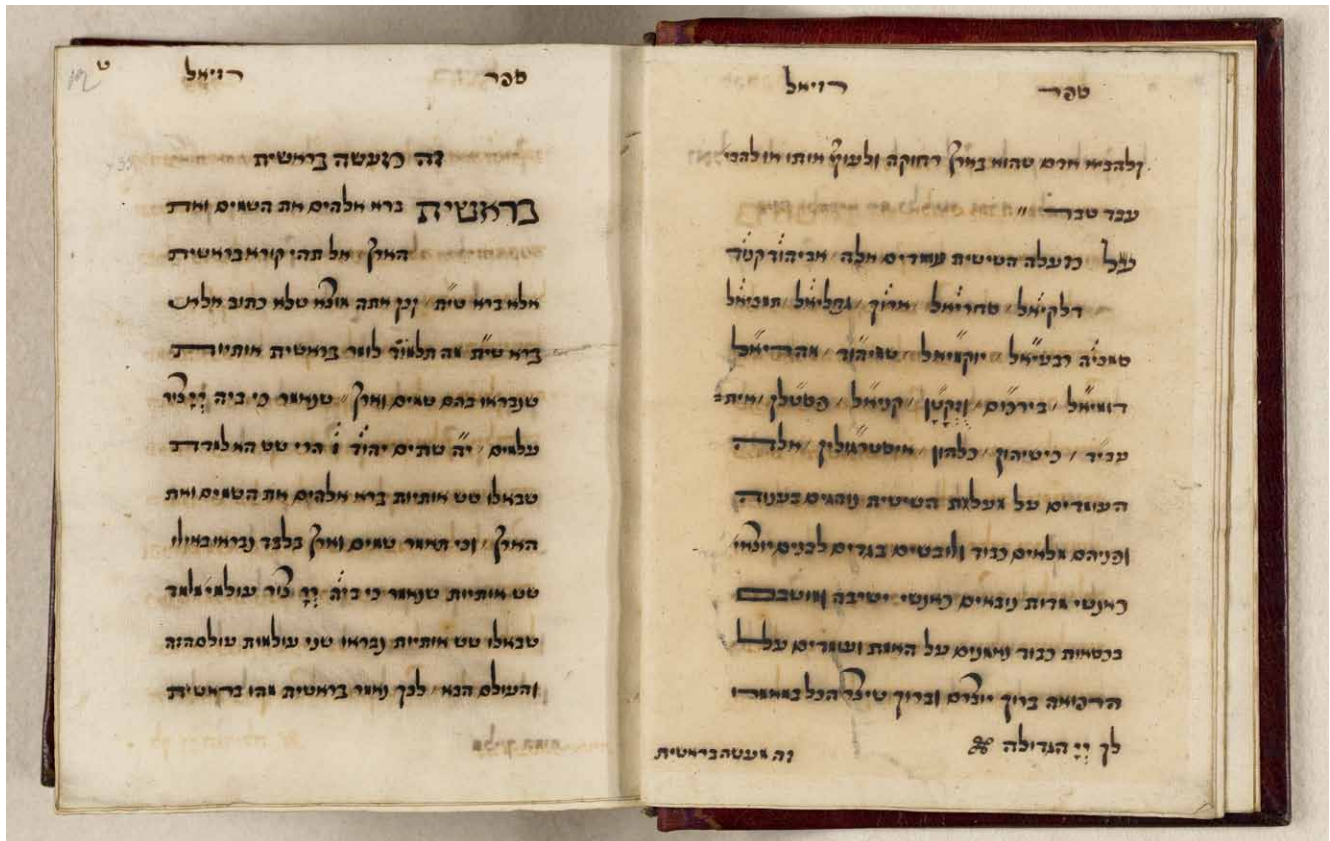 ספר רזיאל
ולהביא אדם שהוא בארץ רחוקה ולעוץ אותו או להבי
עבד טברה
על מעלה הששית עומדים אלה אביהוד קטד
דלקיאל סחריאל ארוך גחליאל תמכיאל
שמכיה רבעיאל יוקמיאל שמיהוד מהריאל
דומיאל בירכום קניאל
עביר כישיהון כלהון איסטרגולין אלה
העומדים על מעלות הששית נוהגים בענוה
ופניהם מלאים כבוד ולובשים בגדים לבנים יוצאי
כאנשי מדות נובאים כאנשי ישיבה מושבם
בכסאות כבוד נאמנים על האמת ועומדים על
הרפואה ברוך יוצרם וברוך שיצר הכל במאמרו
לך יְיָ הגדולה
זה מעשה בראשית
ט
12
ספר רזיאל
זה מעשה בראשית
בראשית ברא אלהים את השמים ואת
הארץ אל תהי קורא בראשית
אלא ברא שית וכן אתה מוצא שלא כתוב אלא
ברא שית מה תלמוד לומר בראשית אותיות
שנבראו בהם שמים וארץ שנאמר כי ביה יְיָ צור
עולמים יה שתים יהוד ו הרי שש הא למדת
שבאלו שש אותיות ברא אלהים את השמים ואת
הארץ וכי תאמר שמים וארץ בלבד נבראו באילו
שש אותיות שנאמר כי ביה יְיָ צור עולמי מלמד
שבאלו שש אותיות נבראו שני עולמות עולם הזה
והעולם הבא לכך נאמר בראשית מהו בראשית